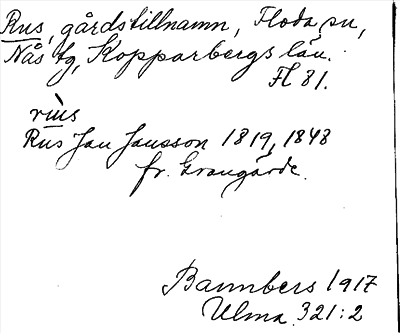 Rus, gårdstillnamn, Floda sn,
Nås tg, Kopparbergs län.
Fl 81.
rùs
Rus Jan Jansson 1819, 1848
fr. Grangärde.
Bannbers 1917
Ulma 321:2